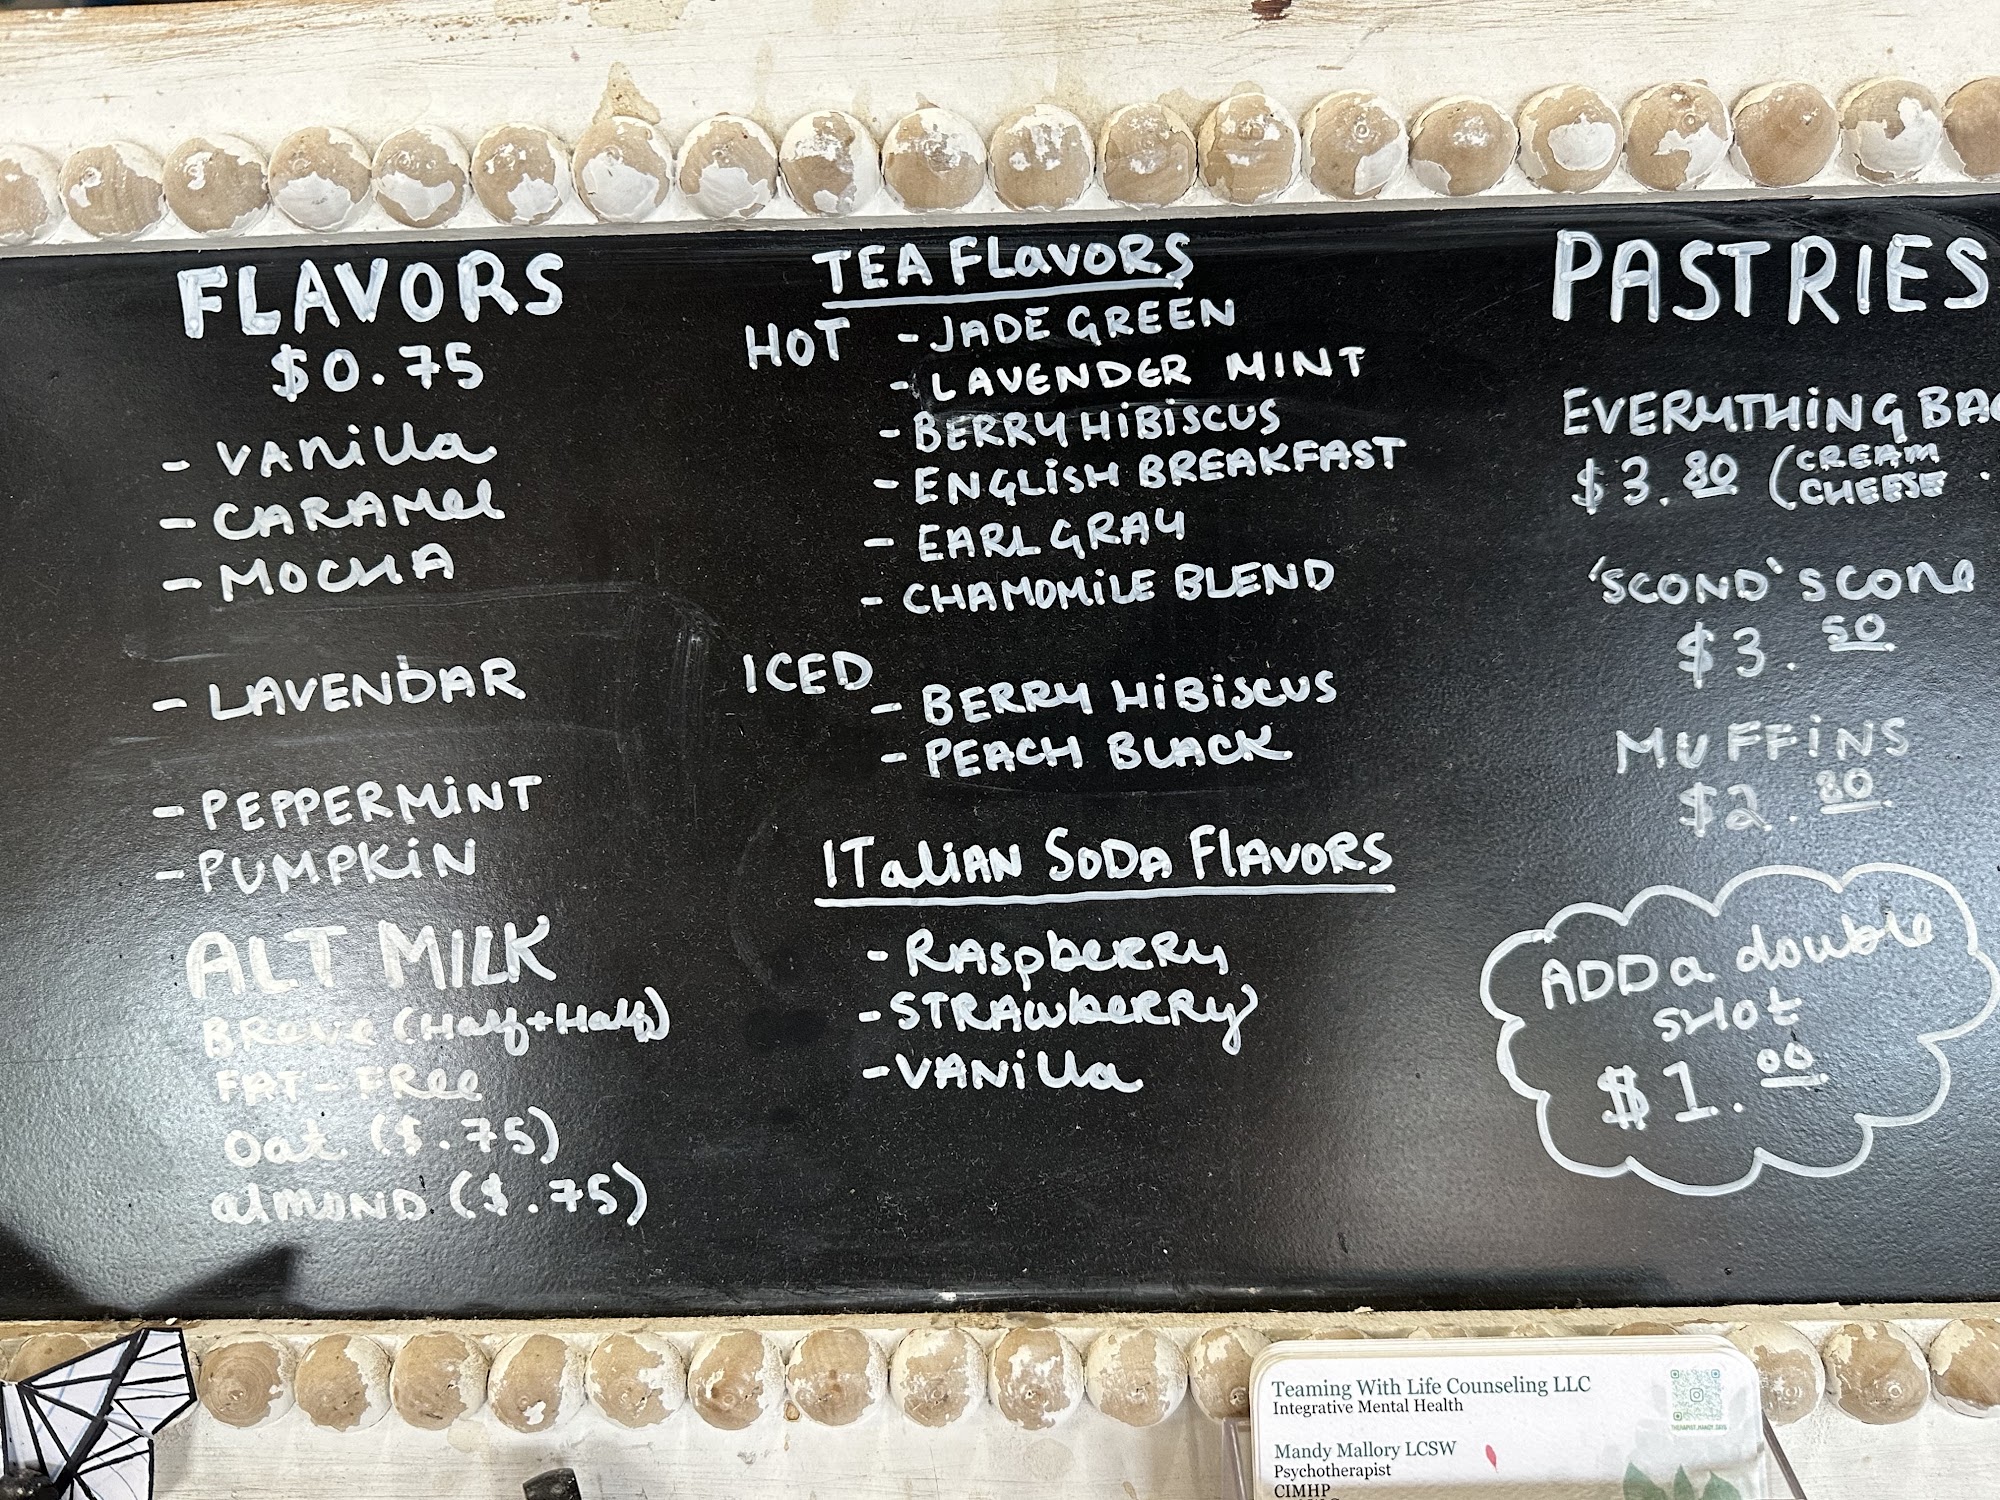 FLAVORS
$0.75
- VANilla
- CARAMel
- MOCHA
- LAVENDAR
- PEPPERMiNT
- PUMPKiN
ALT MILK
BReve (Half+Half)
FAT-FRee
Oat ($.75)
almOND ($.75)
TEA FLavORS
HOT - JADE GREEN
- LAVENDER MINT
- BERRY HiBiSCUS
- ENGLiSH BREAKFAST
- EARL GRAY
- CHAMOMiLE BLEND
ICED
- BERRY HiBiSCUS
- PEACH BLACK
ITaliAN SODA FlAVORS
- RAspbeRRy
- STRAwbeRRy
- VANilla
PASTRIES
EVERYTHiNG
$3.80 (CREAM
CHEESE
'SCOND' SCONe
$3.50
MUFFiNS
$2.80
ADD a double
SHOt
$1.00
Teaming With Life Counseling LLC
Integrative Mental Health
Mandy Mallory LCSW
Psychotherapist
CIMHP